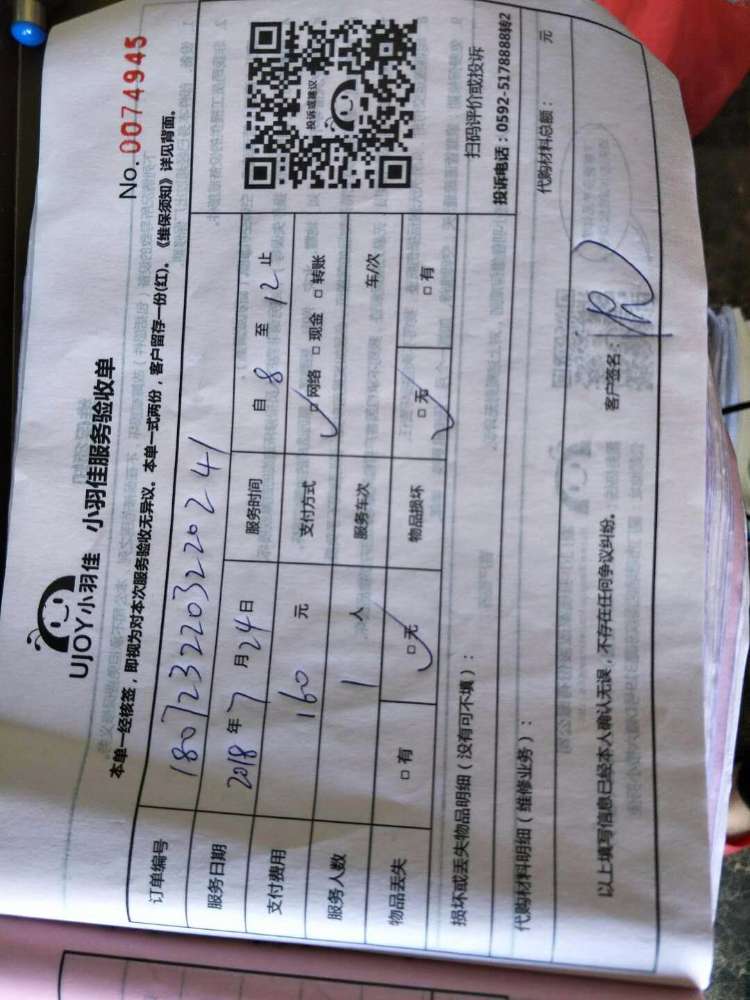 UJOY小羽佳 小羽佳服务验收单
No. 0074945
本单一经核签，即视为对本次服务验收无异议。本单一式两份，客户留存一份(红)。《维保须知》详见背面。
订单编号 180723220322020241
服务日期 2018年7月24日 服务时间 自8至12止
支付费用 160元 支付方式 □网络 □现金 □转账
服务人数 1人 服务车次 车/次
物品丢失 □有 □无 物品损坏 □无 □有
投诉或建议
扫码评价或投诉
投诉电话：0592-5178888转2
损坏或丢失物品明细（没有可不填）：
代购材料明细（维修业务）： 代购材料总额： 元
以上填写信息已经本人确认无误，不存在任何争议纠纷。 客户签名：